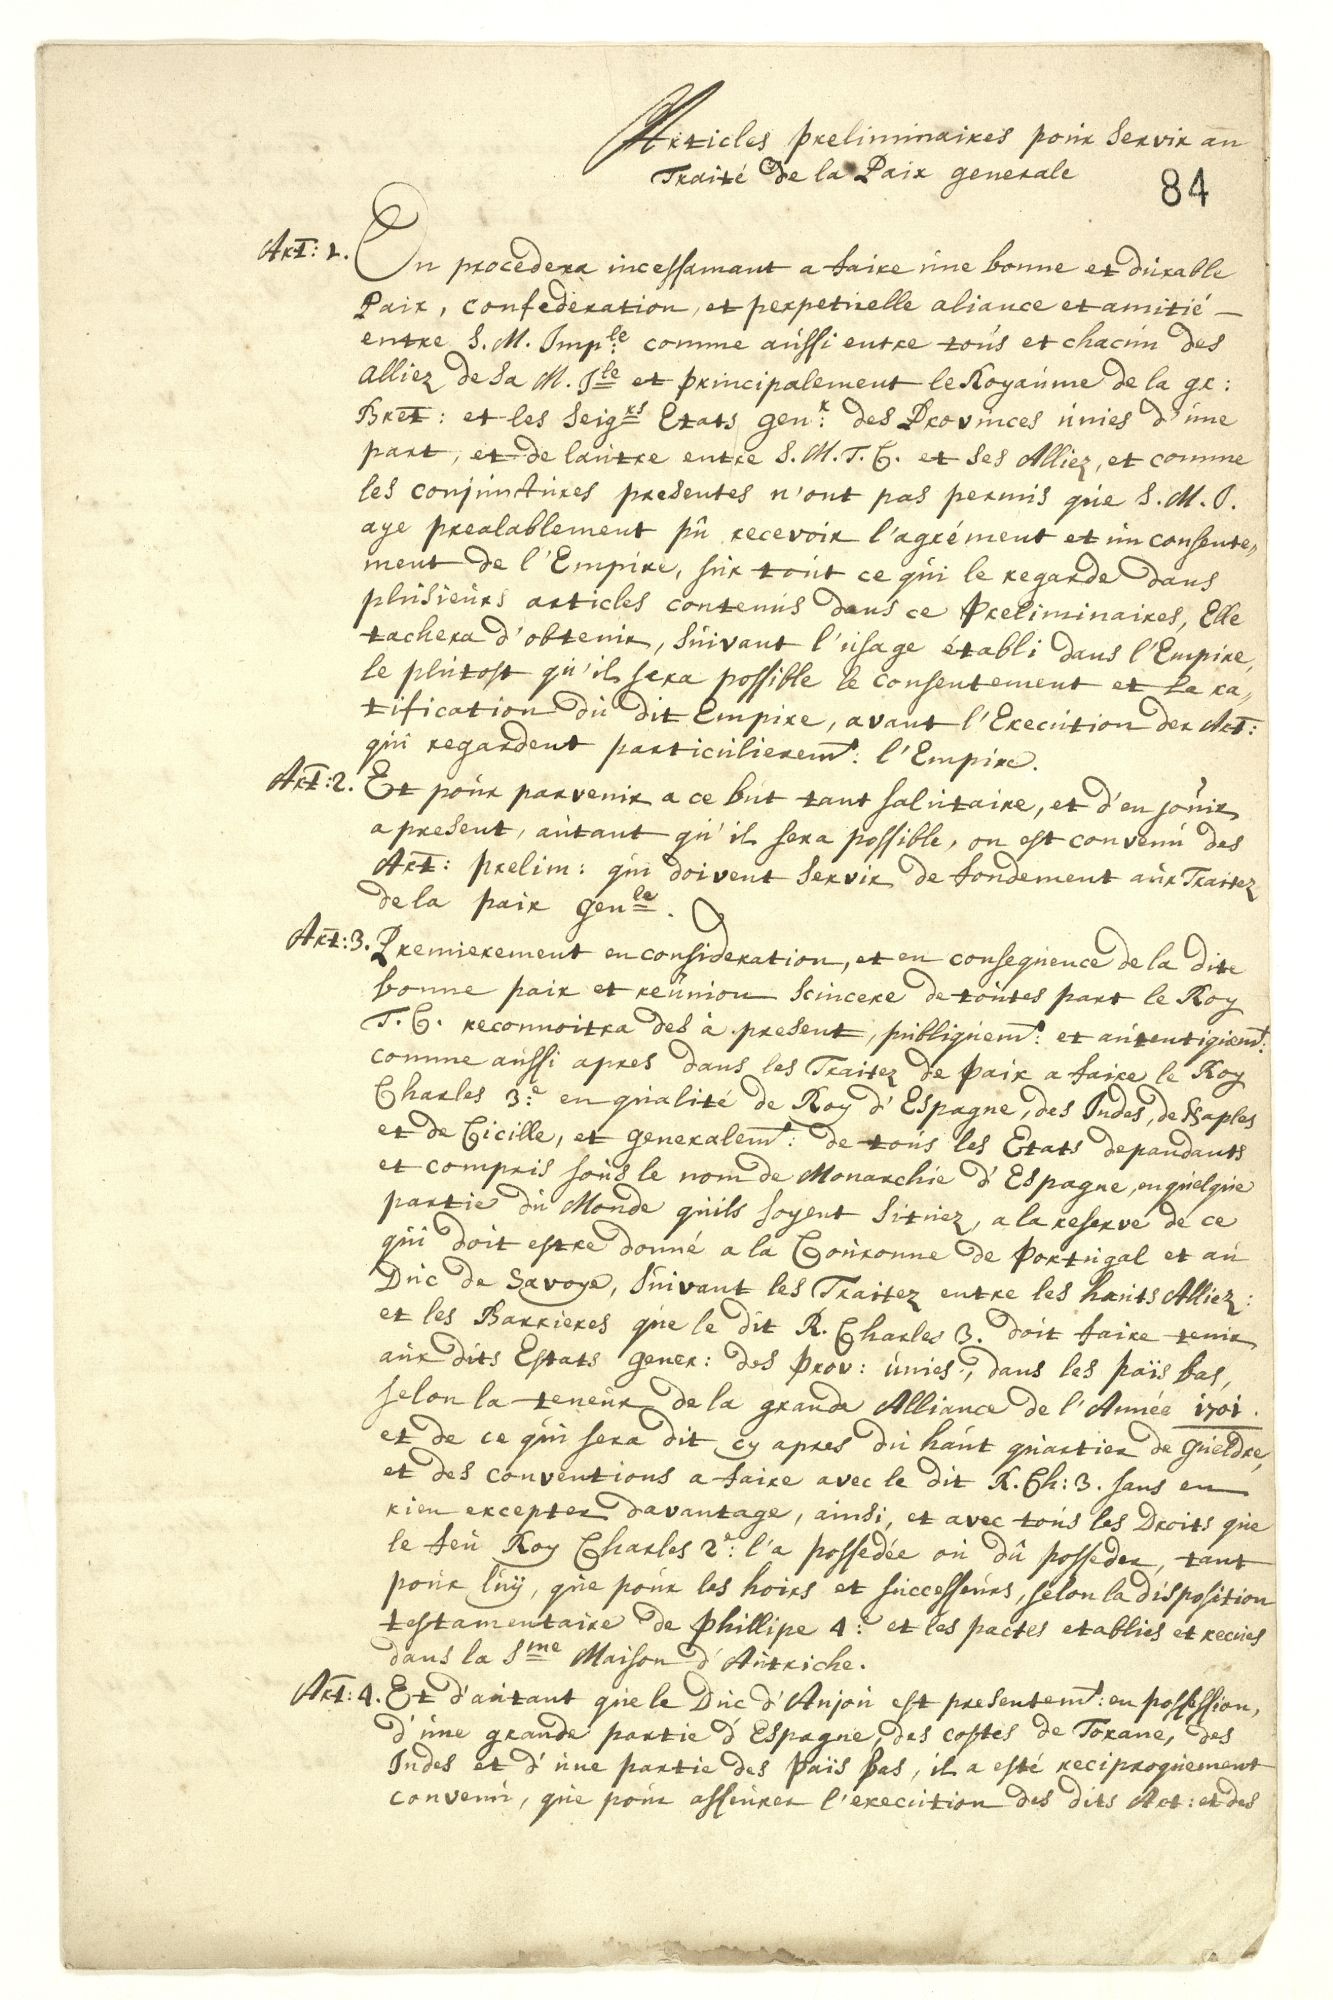 Articles preliminaires pour servir au
Traité de la Paix generale
84
Art: 1. On procedera incessamant a faire une bonne et durable
Paix, confederation, et perpetuelle aliance et amitié
entre S. M. Imp:le comme aussi entre tous et chacun des
alliez de Sa M. Ile et principalement le Royaume de la gr:
Bret: et les Seigrs Etats gen:x des Provinces unies d'une
part, et de lautre entre S. M. T. C. et ses Alliez, et comme
les conjunctures presentes n'ont pas permis que S. M. I.
aye prealablement pû recevoir l'agrément et un consente,,
ment de l'Empire, sur tout ce qui le regarde dans
plusieurs articles contenus dans ce Preliminaires, Elle
tachera d'obtenir, suivant l'usage établi dans l'Empire,
le plutost qu'il sera possible le consentement et la ra,,
tification du dit Empire, avant l'Execution der Art:
qui regardent particulierem:t l'Empire.
Art: 2. Et pour parvenir a ce but tant salutaire, et d'en jouir
a present, autant qu'il sera possible, on est convenu des
Art: prelim: qui doivent servir de fondement aux Traitez
de la paix genle.
Art: 3. Premierement en consideration, et en consequence de la dite
bonne paix et reünion scincere de toutes part le Roy
T. C. reconnoitra des à present, publiquem:t et autentiquem:t
comme aussi apres dans les Traitez de paix a faire le Roy
Charles 3:e en qualité de Roy d'Espagne, des Indes, de Naples
et de Cicille, et generalem:t de tous les Etats dependants
et compris sous le nom de Monarchie d'Espagne, en quelque
partie du Monde quils soyent situez, a la reserve de ce
qui doit estre donné a la Couronne de Portugal et au
Duc de Savoye, suivant les Traitez entre les hauts Alliez:
et les Barrieres que le dit R. Charles 3. doit faire tenir
aux dits Estats gener: des prov: unies, dans les païs bas,
selon la teneur de la grande Alliance de l'Année 1701.
et de ce qui sera dit cy apres du haut quartier de gueldre,
et des conventions a faire avec le dit R. Ch: 3. sans en
rien excepter davantage, ainsi, et avec tous les Droits que
le feu Roy Charles 2:e l'a possedée ou dû posseder, tant
pour luÿ, que pour les hoirs et successeurs, selon la disposition
testamentaire de Phillipe 4: et les pactes etablies et recues
dans la Sme Maison d'Autriche.
Art: 4. Et d'autant que le Duc d'Anjou est presentem:t en possession,
d'une grande partie d'Espagne, des costes de Torane, des
Indes et d'une partie des païs bas, il a esté reciproquement
convenu, que pour asseurer l'execution des dits Art: et des